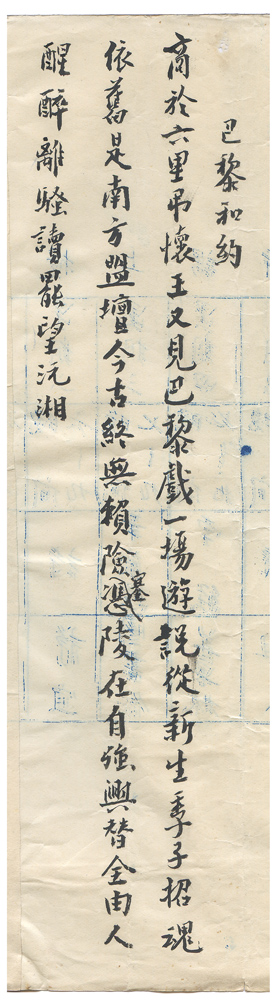 巴黎和約
商於六里弔懷王又見巴黎戲一場遊說從新生季子招魂
依舊是南方盟壇今古終無賴險塞憑陵在自強興替全由人
醒醉離騷讀罷望沅湘